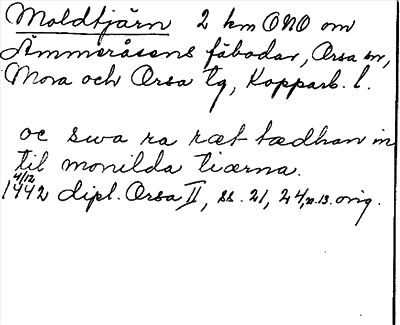 Moldtjärn 2 km ONO om
Ämmeråsens fäbodar, Orsa sn,
Mora och Orsa tg, Kopparb. l.
oc swa ra ræt tædhan in
til monilda tiærna.
4/12
1442 dipl. Orsa II, ss. 21, 24, n. 13. orig.